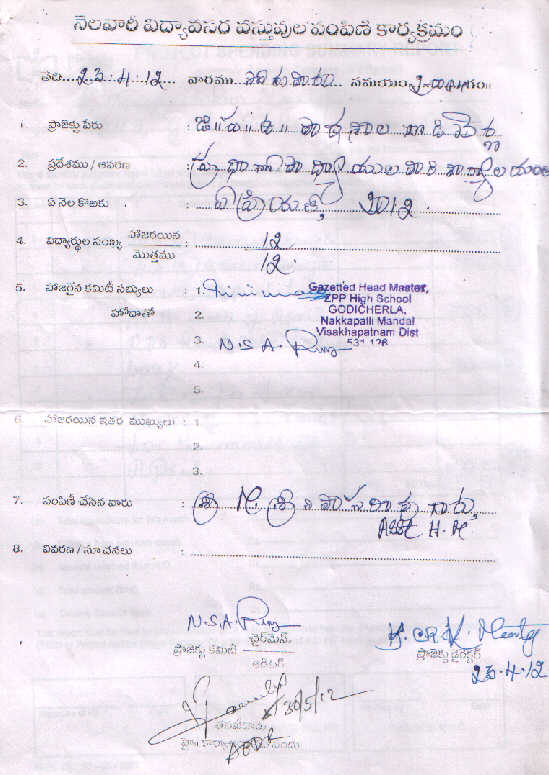 నెలవారీ విద్యావసర వస్తువుల పంపిణి కార్యక్రమం
తేది...23.4.12... వారము సోమవారం సమయం
1. ప్రాజెక్టు పేరు : జి.ప.ఉ. పాఠశాల గొడిచెర్ల
2. ప్రదేశము / ఆవరణ : ప్రధానోపాధ్యాయుల వారి కార్యాలయం
3. ఏ నెల కొఱకు : ఏప్రియల్, 2012
4. విద్యార్థుల సంఖ్య హాజరయిన 12
మొత్తము 12
5. హాజరైన కమిటీ సభ్యులు : 1.
హోదాతో 2.
3. N.S.A.
4.
5.
Gazetted Head Master,
ZPP High School
GODICHERLA,
Nakkapalli Mandal
Visakhapatnam Dist
531 126
6. హాజరయిన ఇతర ముఖ్యులు : 1.
2.
3.
7. పంపిణీ చేసిన వారు : శ్రీ M. శ్రీనివాసరావు గారు,
Asst H.M
8. వివరణ / సూచనలు :
N.S.A.
చైర్‌మెన్
ప్రాజెక్టు కమిటీ
ఆడిటర్
ప్రాజెక్టు డైరెక్టర్
23.4.12
30/5/12